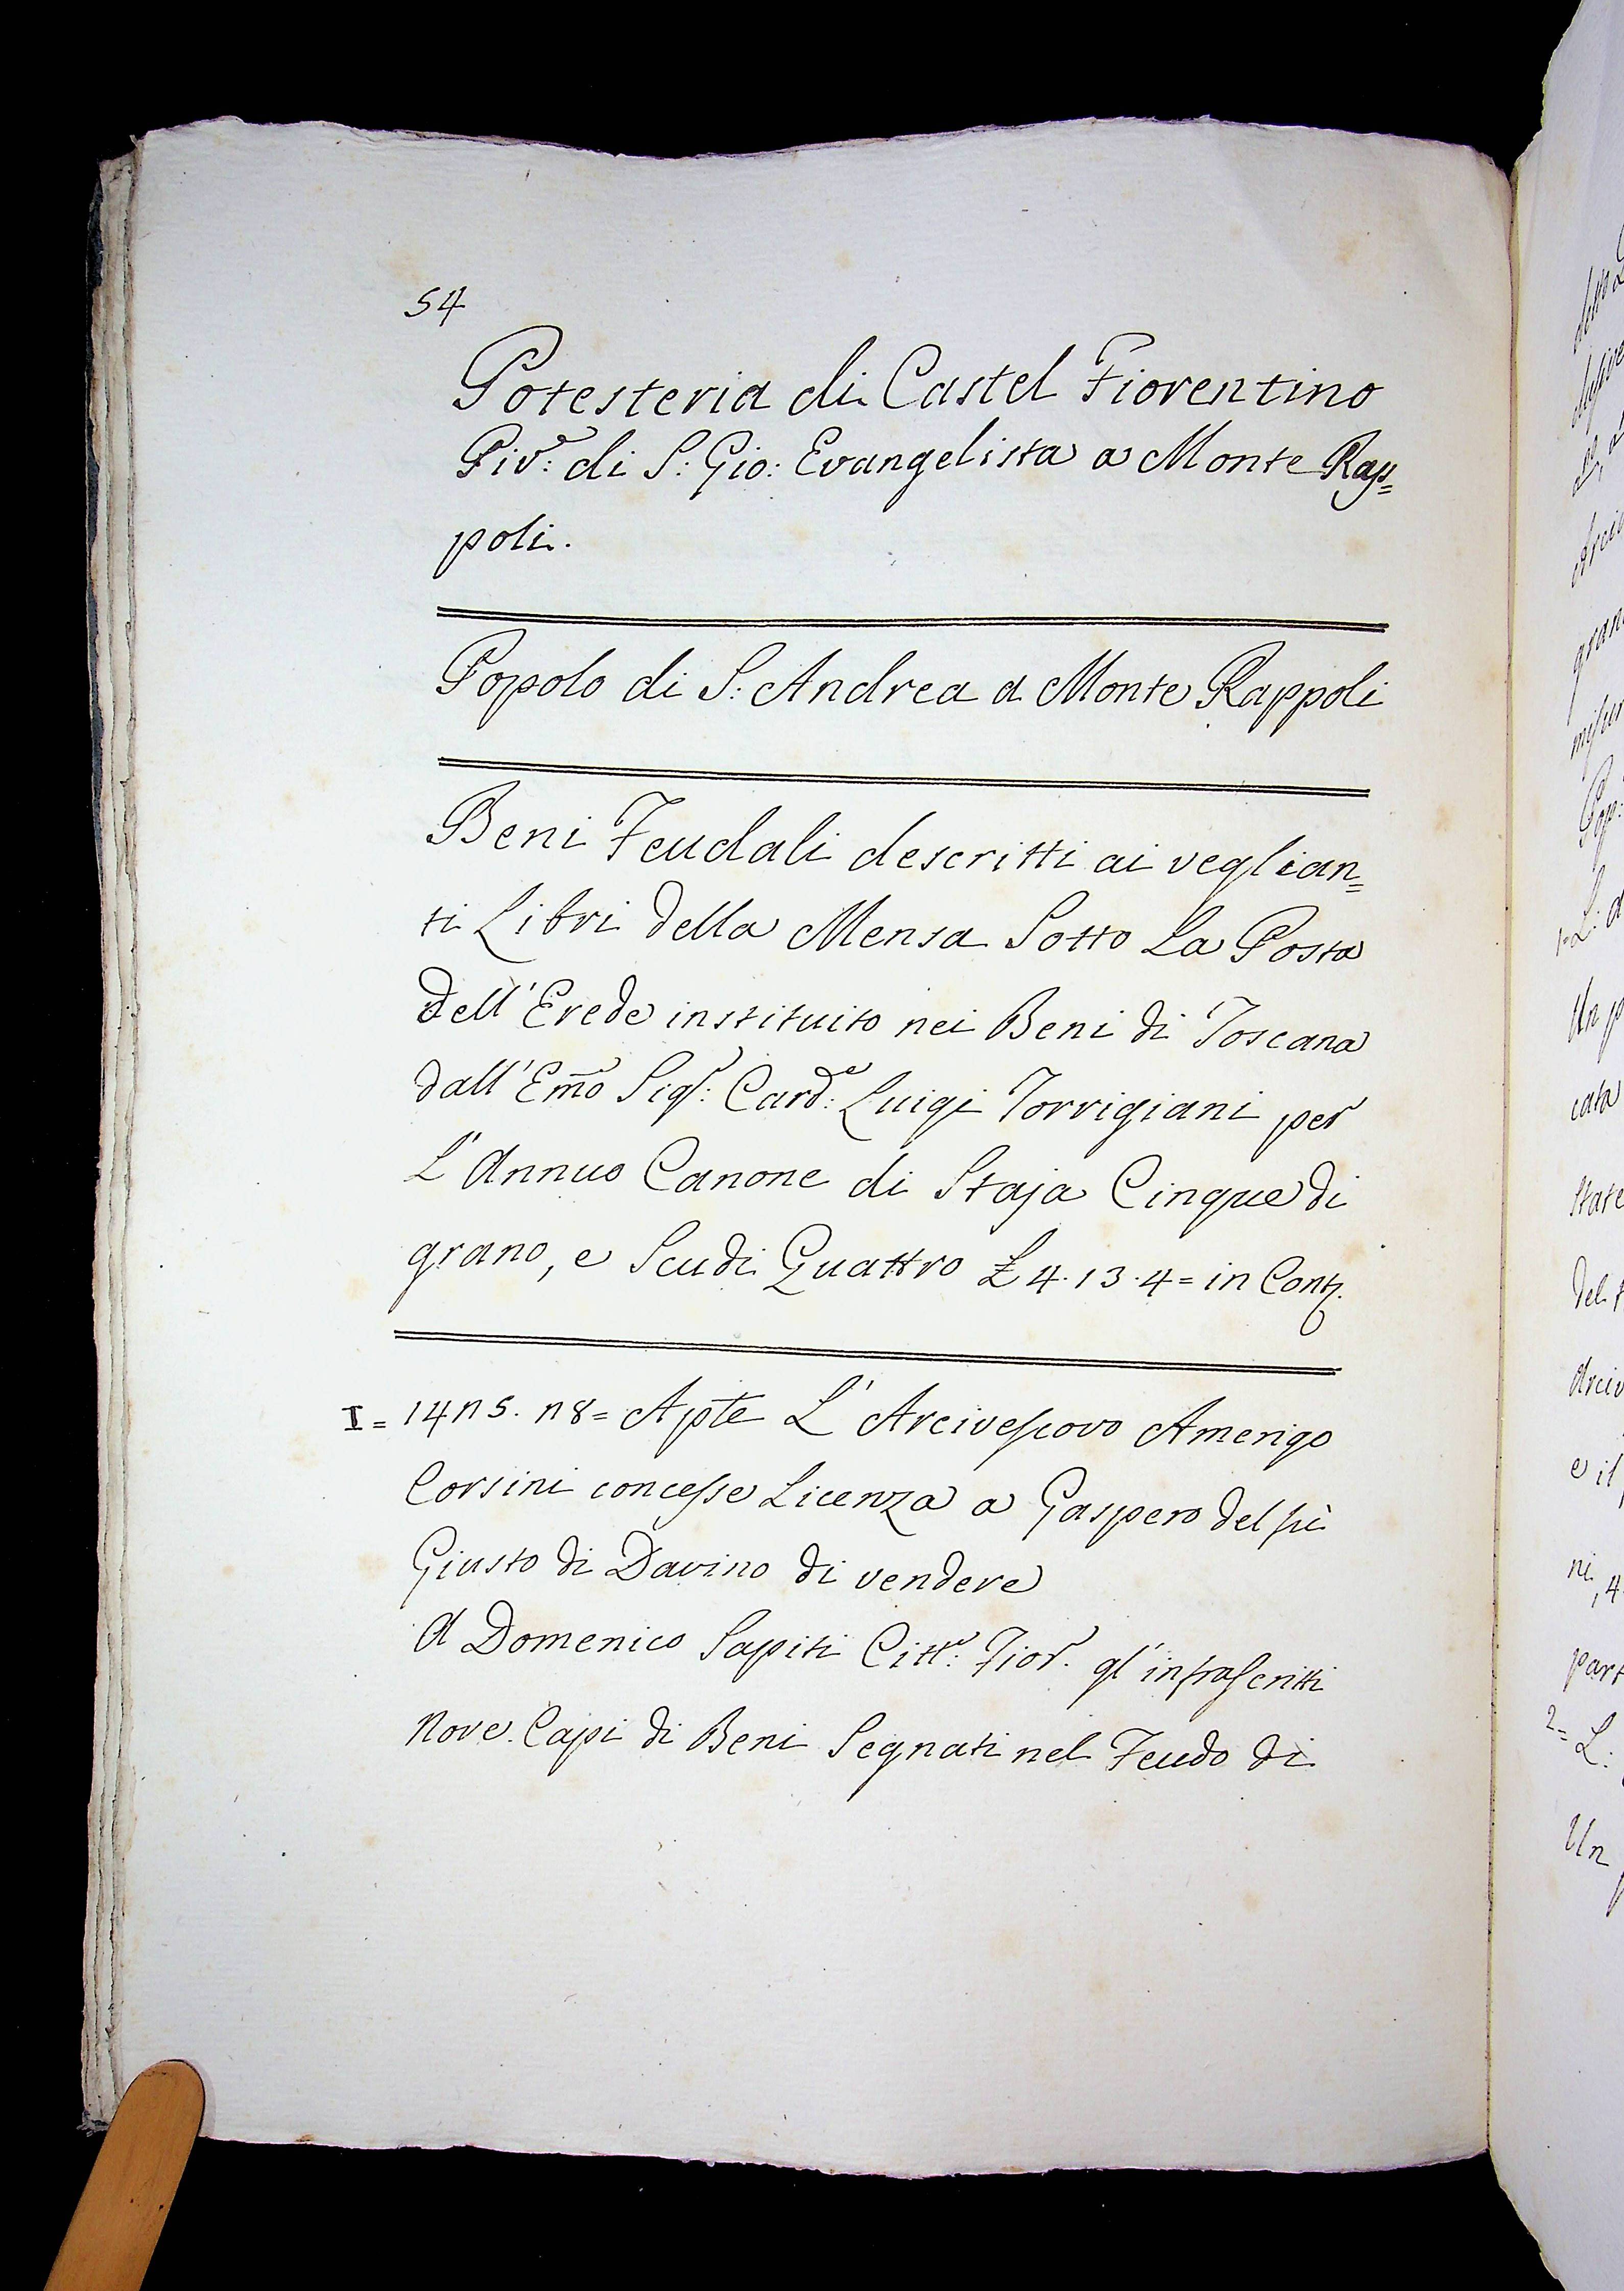 54
Potesteria di Castel Fiorentino
Piv:e di S: Gio: Evangelista a Monte Rap=
poli.
Popolo di S: Andrea a Monte Rappoli
Beni Feudali descritti ai veglian=
ti Libri della Mensa Sotto La Posta
dell' Erede instituito nei Beni di Toscana
dall' Emo Sigr: Card:e Luigi Torrigiani per
L'Annuo Canone di Staja Cinque di
grano, e Scudi Quattro £ 4.13.4= in Contj.
I = 14 Apte L' Arcivescovo Amerigo
Corsini concesse Licenza a Gaspero del fù
Giusto di Davino di vendere
A Domenico Sapiti Citt:o Fior.o gl' infrascritti
nove Capi di Beni Segnati nel Feudo di
Un
cata
2= L:
Un